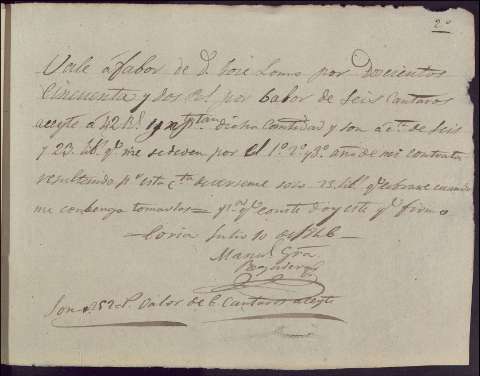 2º
Vale á fabor de D. Jose Lomo por Doscientos
Cincuenta y dos Rs. por balor de Seis Cantaros
aceyte á 42 Rs. dicha Cantidad y son á cta. de Seis
y 23 lib. qe. me se deven por el 1º 2º y 3º año de mi contrata
resultando pr. esta cta. 23 lib. qe. cobrare cuando
me conbenga tomarlas = y pa. qe. conste doy este qe. firmo
Coria Julio 10 de
Manuel Gra.
Son 252 Rs. Valor de 6 Cantaros aceyte